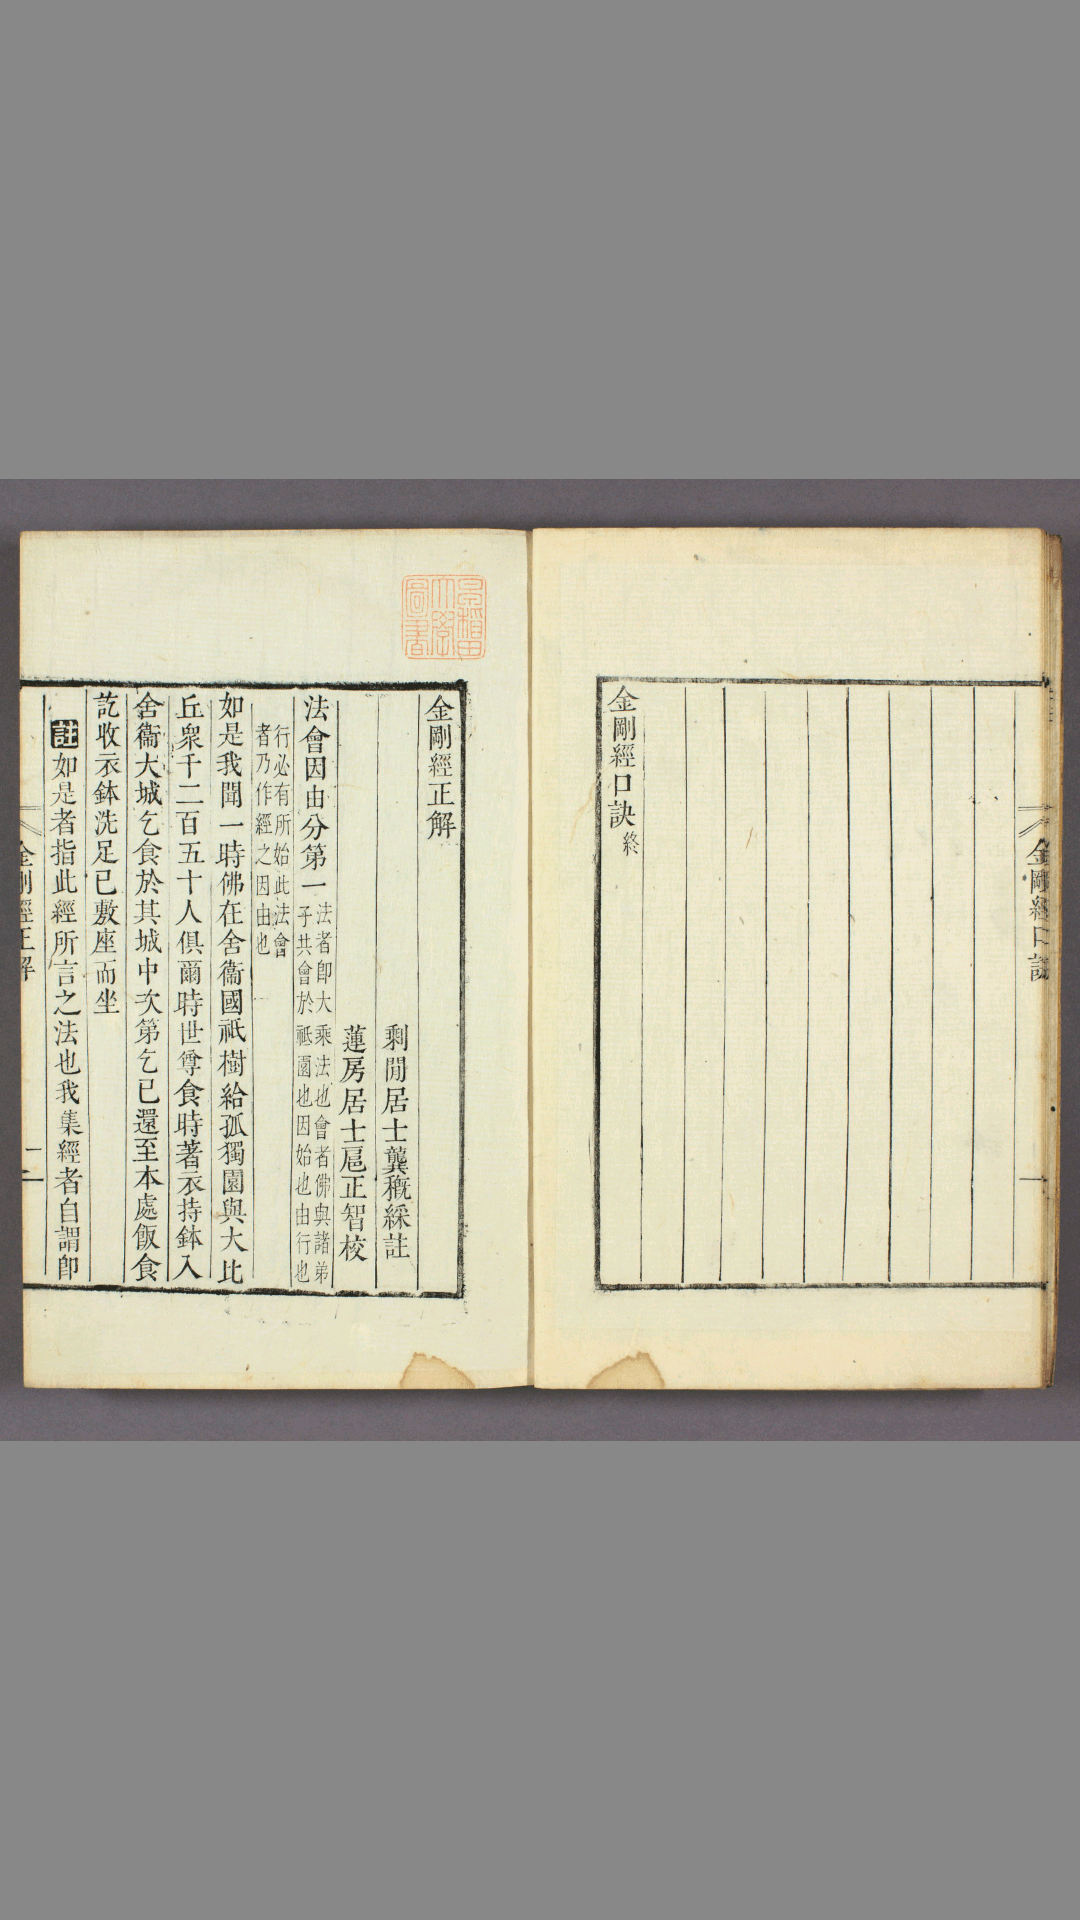 金剛經口訣
金剛經口訣終
金剛經正解
剩閒居士龔穊綵註
蓮房居士扈正智校
法會因由分第一
法者卽大乘法也會者佛與諸弟
子共會於祗園也因始也由行也
行必有所始此法會
者乃作經之因由也
如是我聞一時佛在舍衞國祗樹給孤獨園與大比
丘衆千二百五十人俱爾時世尊食時著衣持鉢入
舍衞大城乞食於其城中次第乞已還至本處飯食
訖收衣鉢洗足已敷座而坐
註如是者指此經所言之法也我集經者自謂卽
金剛經正解
早稻田大學圖書